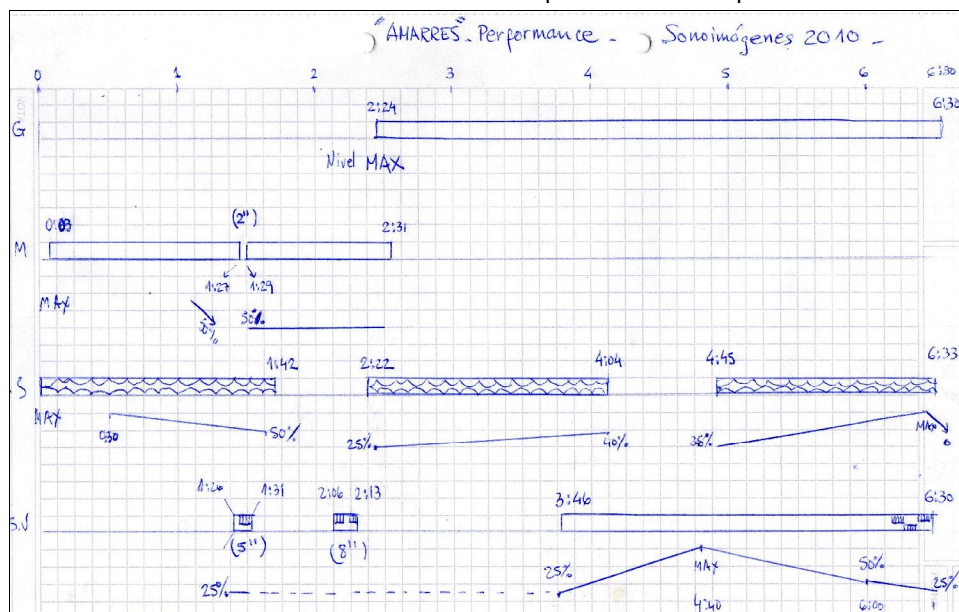 "AMARRES" - Performance - Sonoimágenes 2010 -
0 1 2 3 4 5 6 6:30
2:24 6:30
G
Nivel MAX
0:03 (2") 2:31
M
1:27 1:29
MAX
50% 50%
1:42 2:22 4:04 4:45 6:33
S
MAX 0:30 50% 25% 40% MAX 0
1:26 1:31 2:06 2:13 3:46 6:30
S.V
(5") (8")
25% 25% MAX 50% 25%
4:40 6:00